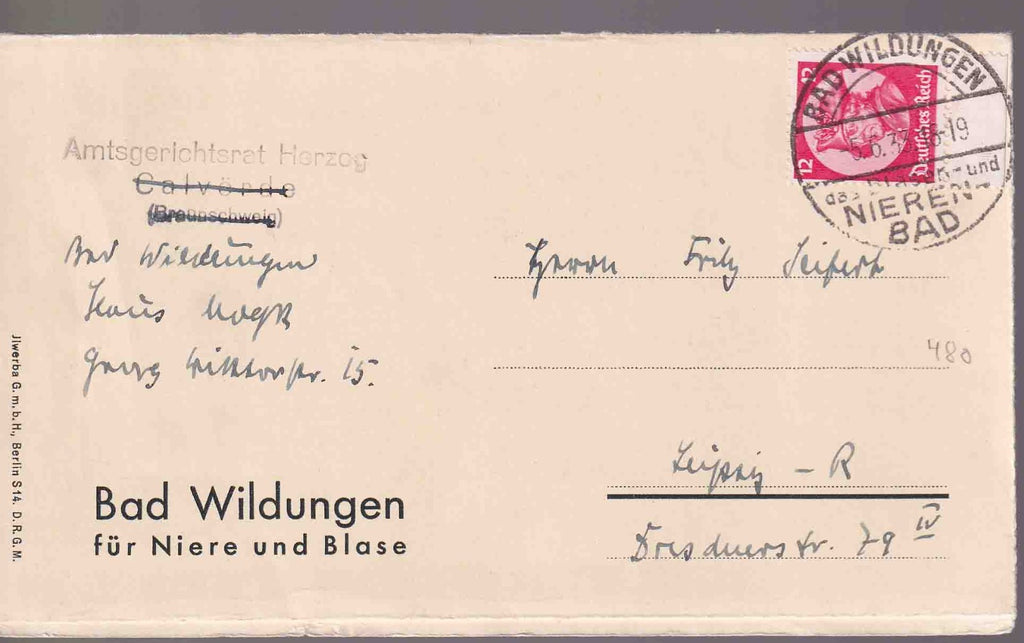 Amtsgerichtsrat Herzog
Calvörde
(Braunschweig)
Bad Wildungen
Haus Mogk
Georg Viktorstr. 15.
Jlwerba G.m.b.H., Berlin S 14. D.R.G.M.
Bad Wildungen
für Niere und Blase
12
12
Deutsches Reich
BAD WILDUNGEN
-5.6.33.18-19
das BLASEN- und
NIEREN-
BAD
Herrn Fritz Seifert
480
Leipzig - R
Dresdnerstr. 79 IV